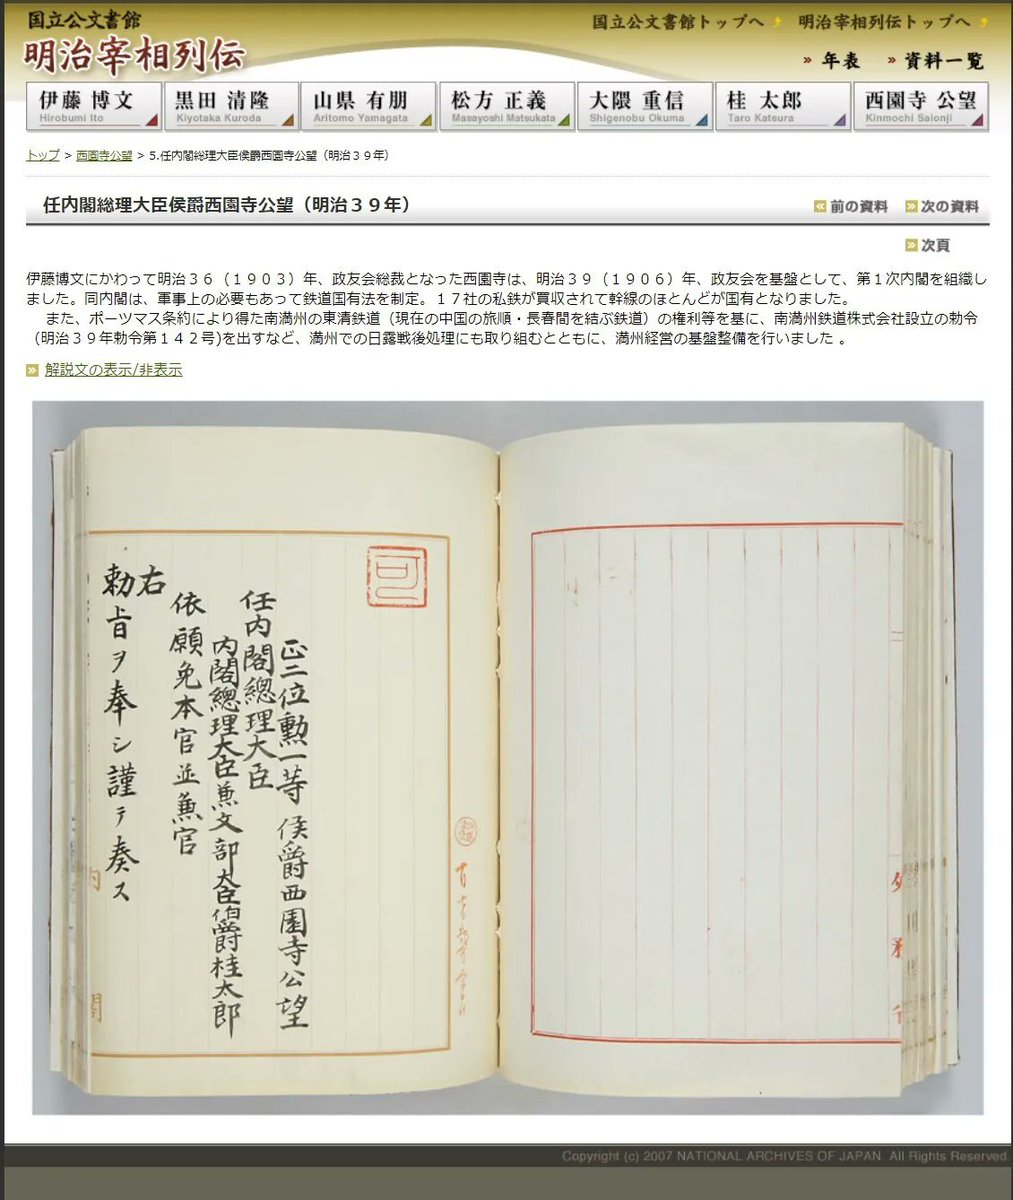 国立公文書館
明治宰相列伝
国立公文書館トップへ 明治宰相列伝トップへ
» 年表 » 資料一覧
伊藤 博文 黒田 清隆 山県 有朋 松方 正義 大隈 重信 桂 太郎 西園寺 公望
Hirobumi Ito Kiyotaka Kuroda Aritomo Yamagata Masayoshi Matsukata Shigenobu Okuma Taro Katsura Kinmochi Saionji
トップ > 西園寺公望 > 5.任内閣総理大臣侯爵西園寺公望（明治３９年）
任内閣総理大臣侯爵西園寺公望（明治３９年）
« 前の資料 » 次の資料
» 次頁
伊藤博文にかわって明治３６（１９０３）年、政友会総裁となった西園寺は、明治３９（１９０６）年、政友会を基盤として、第１次内閣を組織し
ました。同内閣は、軍事上の必要もあって鉄道国有法を制定。１７社の私鉄が買収されて幹線のほとんどが国有となりました。
また、ポーツマス条約により得た南満州の東清鉄道（現在の中国の旅順・長春間を結ぶ鉄道）の権利等を基に、南満州鉄道株式会社設立の勅令
（明治３９年勅令第１４２号)を出すなど、満州での日露戦後処理にも取り組むとともに、満州経営の基盤整備を行いました 。
» 解説文の表示/非表示
可
正二位勲一等 侯爵西園寺公望
任内閣總理大臣
内閣總理大臣兼文部大臣伯爵桂太郎
依願免本官並兼官
右
勅旨ヲ奉シ謹テ奏ス
内閣
Copyright (c) 2007 NATIONAL ARCHIVES OF JAPAN. All Rights Reserved